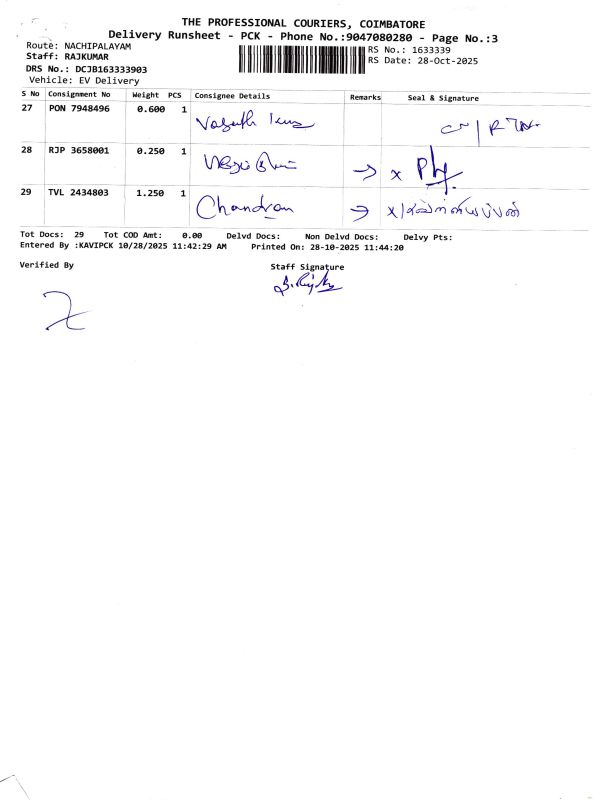 THE PROFESSIONAL COURIERS, COIMBATORE
Delivery Runsheet - PCK - Phone No.:9047080280 - Page No.:3
Route: NACHIPALAYAM
RS No.: 1633339
Staff: RAJKUMAR
RS Date: 28-Oct-2025
DRS No.: DCJB163333903
Vehicle: EV Delivery
S No Consignment No Weight PCS Consignee Details Remarks Seal & Signature
27 PON 7948496 0.600 1
28 RJP 3658001 0.250 1
29 TVL 2434803 1.250 1 Chandran
Tot Docs: 29 Tot COD Amt: 0.00 Delvd Docs: Non Delvd Docs: Delvy Pts:
Entered By :KAVIPCK 10/28/2025 11:42:29 AM Printed On: 28-10-2025 11:44:20
Verified By Staff Signature